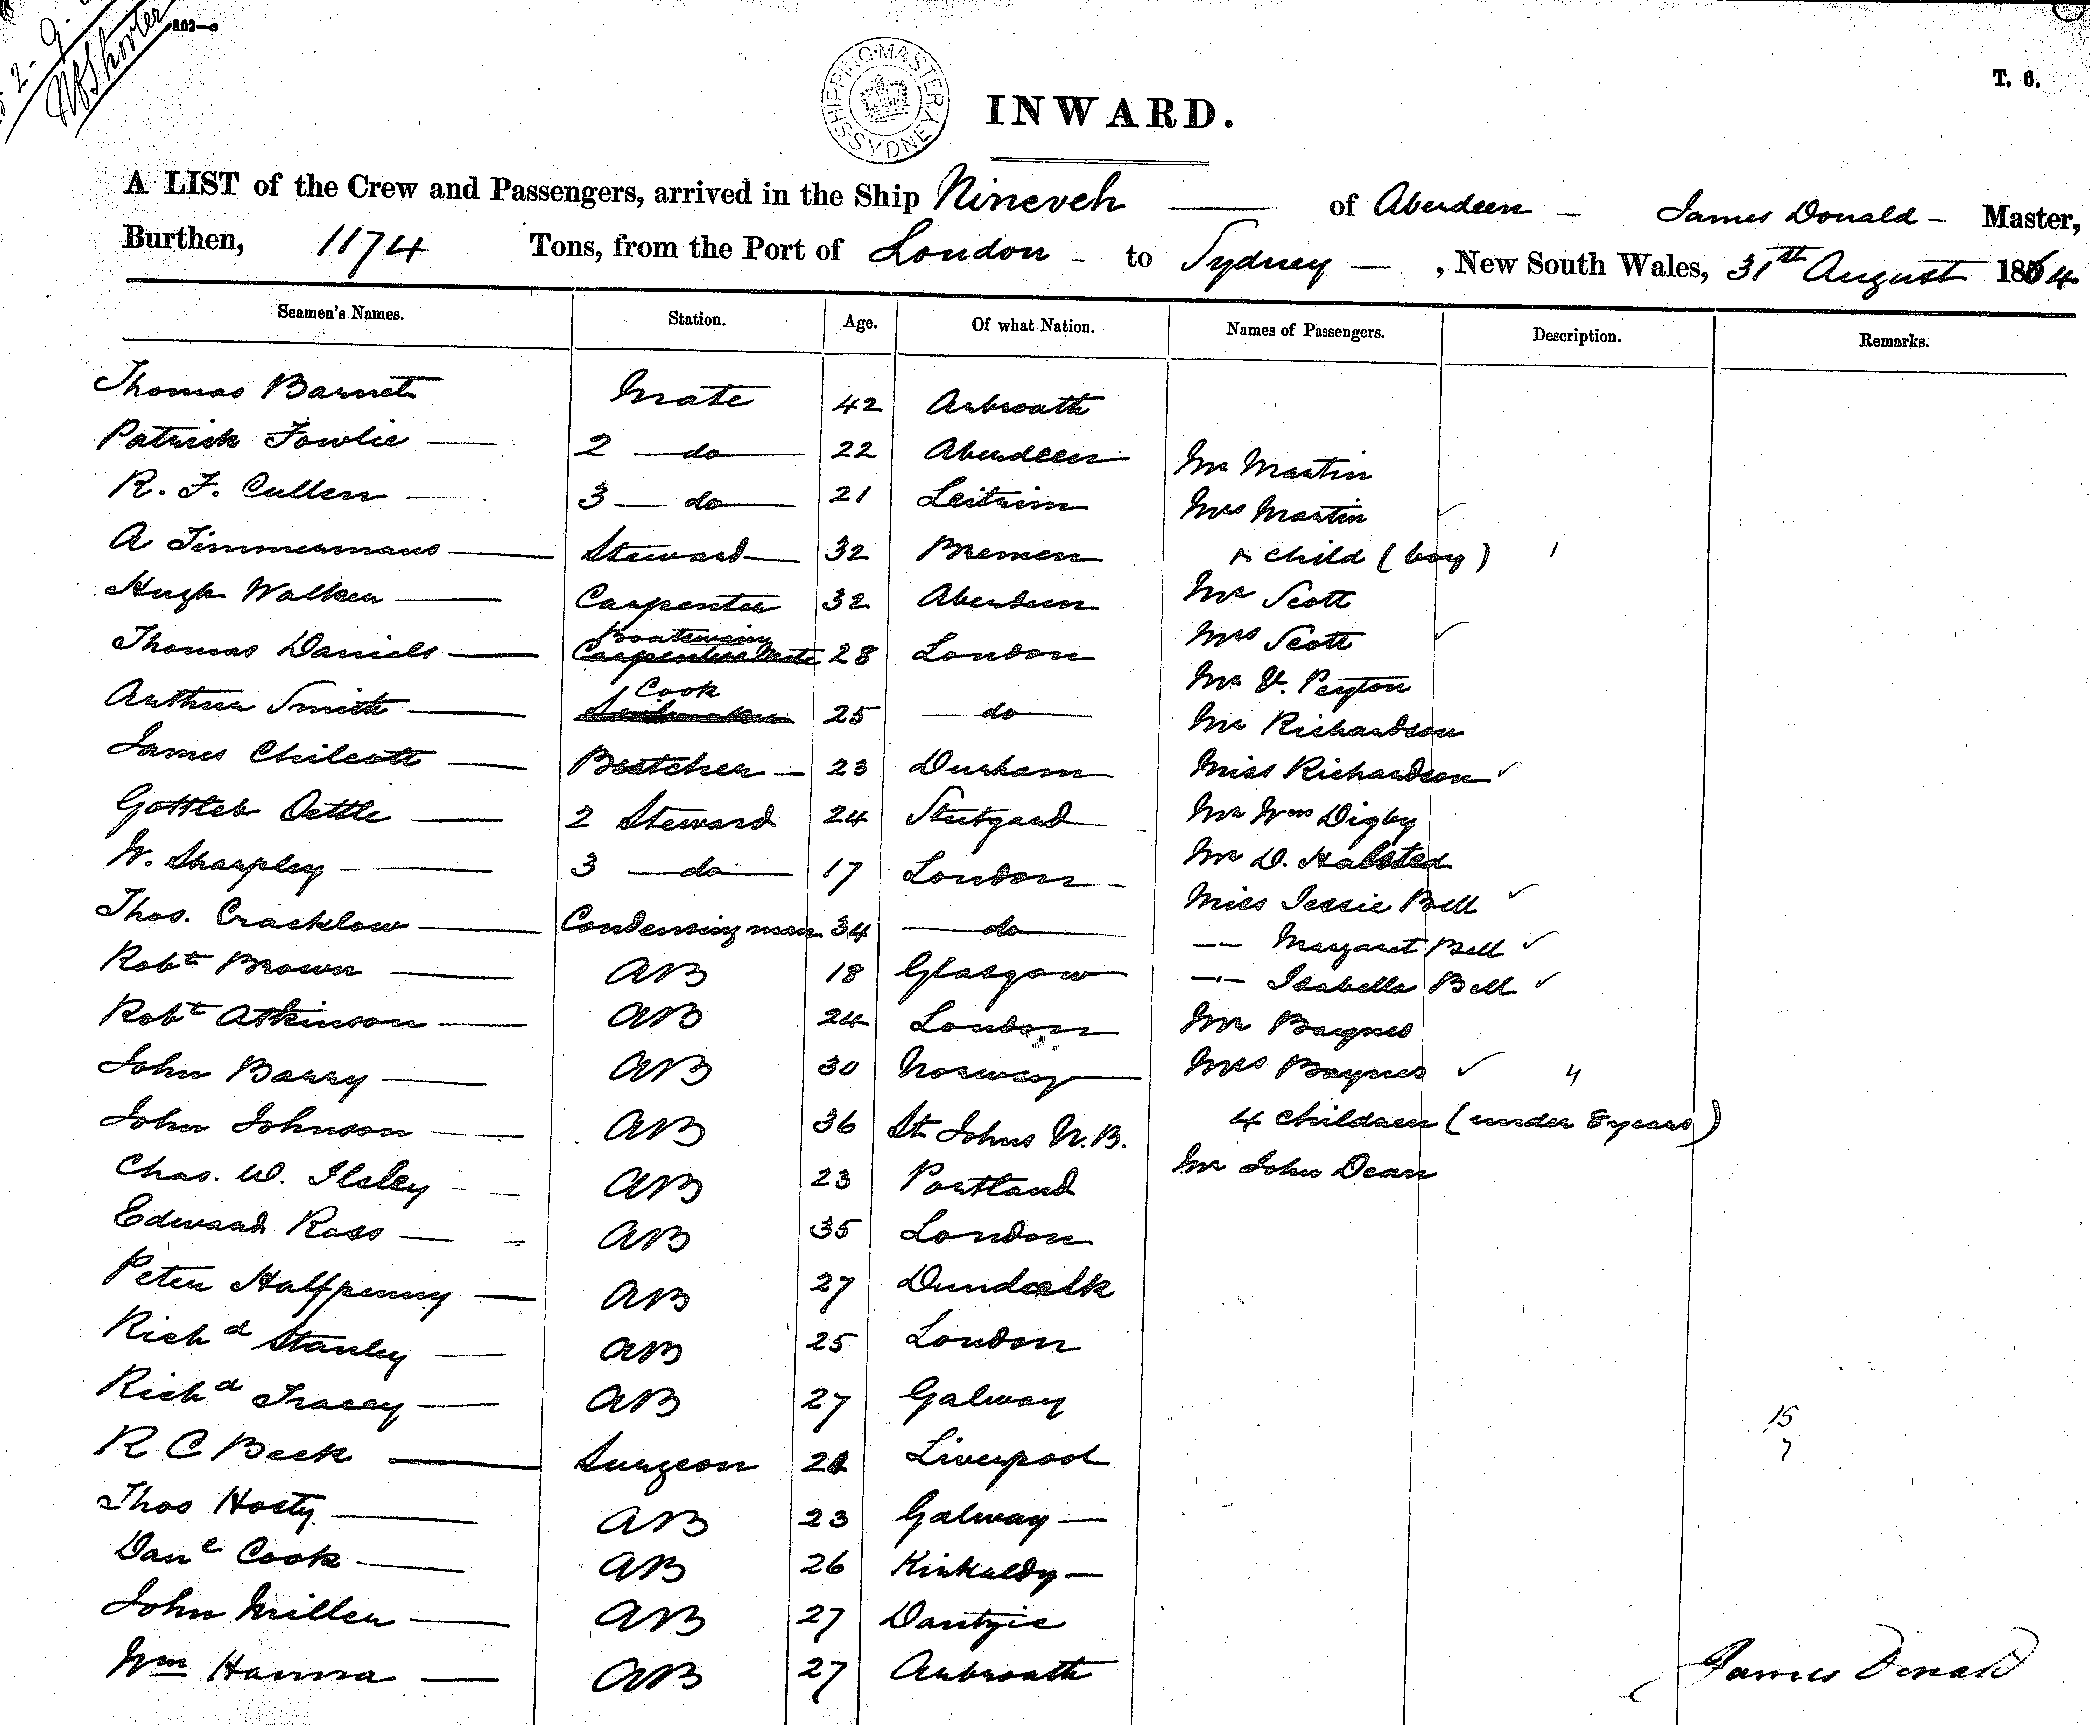 2-9-
WB Shorter
T. 6.
SHIPPING MASTER SYDNEY
INWARD.
A LIST of the Crew and Passengers, arrived in the Ship Nineveh of Aberdeen - James Donald - Master,
Burthen, 1174 Tons, from the Port of London - to Sydney - , New South Wales, 31th August 1864
Seamen's Names. Station. Age. Of what Nation. Names of Passengers. Description. Remarks.
Thomas Barnet Mate 42 Arbroath
Patrick Fowlie 2 do 22 Aberdeen Mr Martin
R. F. Cullen 3 do 21 Leitrim Mrs Martin ✓
A Timmermans Steward 32 Bremen & child (boy) 1
Hugh Walker Carpenter 32 Aberdeen Mr Scott
Thomas Daniels Boatswain Carpenters Mate 28 London Mrs Scott ✓
Mr V. Peyton
Arthur Smith Cook 25 do Mr Richardson
James Chilcott Butcher 23 Durham Miss Richardson ✓
Gottleb Oettle 2 Steward 24 Stutgard Mr Wm Digby
W. Sharpley 3 do 17 London Mr D. Halsted
Miss Jessie Bell ✓
Thos. Cracklow Condensing man 34 do — Margaret Bell ✓
Robt Brown AB 18 Glasgow — Isabella Bell ✓
Robt Atkinson AB 24 London Mr Baynes
John Barry AB 30 Norway Mrs Baynes ✓ 4
John Johnson AB 36 St Johns N.B. 4 children (under 8 years)
Chas. W. Ilsley AB 23 Portland Mr John Dean
Edward Ross AB 35 London
Peter Halfpenny AB 27 Dundalk
Richd Stanley AB 25 London
Richd Tracey AB 27 Galway 15
R C Beck Surgeon 21 Liverpool 7
Thos Hosty AB 23 Galway
Danl Cook AB 26 Kirkaldy
John Miller AB 27 Dantzic
Wm Hanna AB 27 Arbroath James Donald